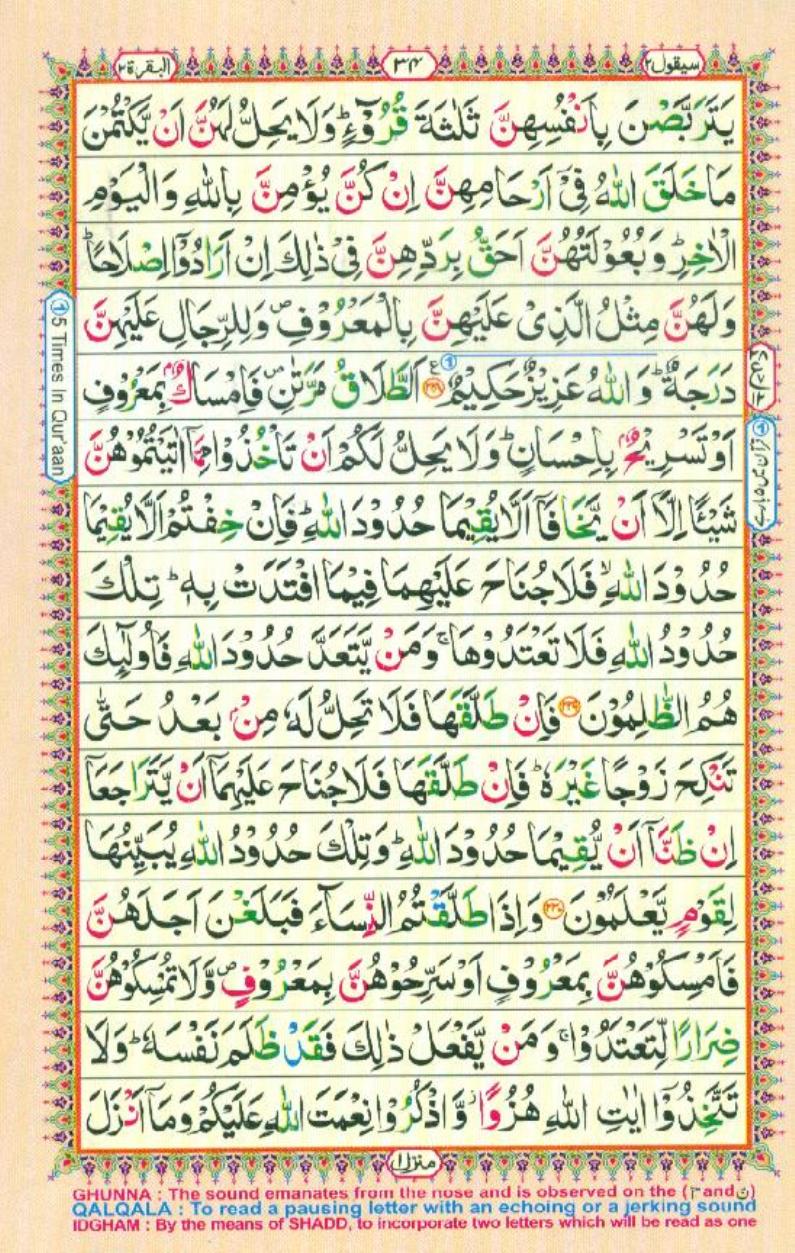 البقرة ٢
٣٤
سيقول ٢
يَتَرَبَّصْنَ بِاَنْفُسِهِنَّ ثَلٰثَةَ قُرُوْٓءٍ ؕ وَلَا يَحِلُّ لَهُنَّ اَنْ يَّكْتُمْنَ
مَا خَلَقَ اللّٰهُ فِیْۤ اَرْحَامِهِنَّ اِنْ كُنَّ يُؤْمِنَّ بِاللّٰهِ وَالْيَوْمِ
الْاٰخِرِ ؕ وَبُعُوْلَتُهُنَّ اَحَقُّ بِرَدِّهِنَّ فِیْ ذٰلِكَ اِنْ اَرَادُوْۤا اِصْلَاحًا ؕ
وَلَهُنَّ مِثْلُ الَّذِیْ عَلَيْهِنَّ بِالْمَعْرُوْفِ ۪ وَلِلرِّجَالِ عَلَيْهِنَّ
دَرَجَةٌ ؕ وَاللّٰهُ عَزِيْزٌ حَكِيْمٌ ﴿۲۲۸﴾ اَلطَّلَاقُ مَرَّتٰنِ ۪ فَاِمْسَاكٌۢ بِمَعْرُوْفٍ
اَوْ تَسْرِيْحٌۢ بِاِحْسَانٍ ؕ وَلَا يَحِلُّ لَكُمْ اَنْ تَاْخُذُوْا مِمَّاۤ اٰتَيْتُمُوْهُنَّ
شَيْئًا اِلَّاۤ اَنْ يَّخَافَاۤ اَلَّا يُقِيْمَا حُدُوْدَ اللّٰهِ ؕ فَاِنْ خِفْتُمْ اَلَّا يُقِيْمَا
حُدُوْدَ اللّٰهِ ۙ فَلَا جُنَاحَ عَلَيْهِمَا فِيْمَا افْتَدَتْ بِهٖ ؕ تِلْكَ
حُدُوْدُ اللّٰهِ فَلَا تَعْتَدُوْهَا ۚ وَمَنْ يَّتَعَدَّ حُدُوْدَ اللّٰهِ فَاُولٰٓئِكَ
هُمُ الظّٰلِمُوْنَ ﴿۲۲۹﴾ فَاِنْ طَلَّقَهَا فَلَا تَحِلُّ لَهٗ مِنْۢ بَعْدُ حَتّٰى
تَنْكِحَ زَوْجًا غَيْرَهٗ ؕ فَاِنْ طَلَّقَهَا فَلَا جُنَاحَ عَلَيْهِمَاۤ اَنْ يَّتَرَاجَعَاۤ
اِنْ ظَنَّاۤ اَنْ يُّقِيْمَا حُدُوْدَ اللّٰهِ ؕ وَتِلْكَ حُدُوْدُ اللّٰهِ يُبَيِّنُهَا
لِقَوْمٍ يَّعْلَمُوْنَ ﴿۲۳۰﴾ وَاِذَا طَلَّقْتُمُ النِّسَآءَ فَبَلَغْنَ اَجَلَهُنَّ
فَاَمْسِكُوْهُنَّ بِمَعْرُوْفٍ اَوْ سَرِّحُوْهُنَّ بِمَعْرُوْفٍ ۪ وَّلَا تُمْسِكُوْهُنَّ
ضِرَارًا لِّتَعْتَدُوْا ۚ وَمَنْ يَّفْعَلْ ذٰلِكَ فَقَدْ ظَلَمَ نَفْسَهٗ ؕ وَلَا
تَتَّخِذُوْۤا اٰيٰتِ اللّٰهِ هُزُوًا ؗ وَّاذْكُرُوْا نِعْمَتَ اللّٰهِ عَلَيْكُمْ وَمَاۤ اَنْزَلَ
منزل ١
① 5 Times In Qur'aan
GHUNNA : The sound emanates from the nose and is observed on the (م and ن)
QALQALA : To read a pausing letter with an echoing or a jerking sound
IDGHAM : By the means of SHADD, to incorporate two letters which will be read as one